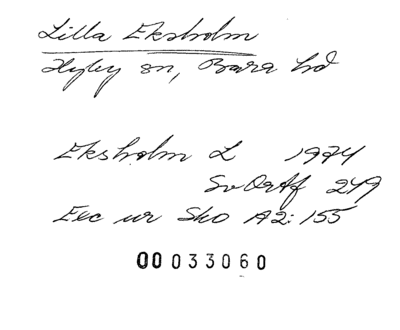 Lilla Eksholm
Hyby sn, Bara hd
Eksholm L 1974
SvOrtf 249
Exc ur Sko A2: 155
00033060